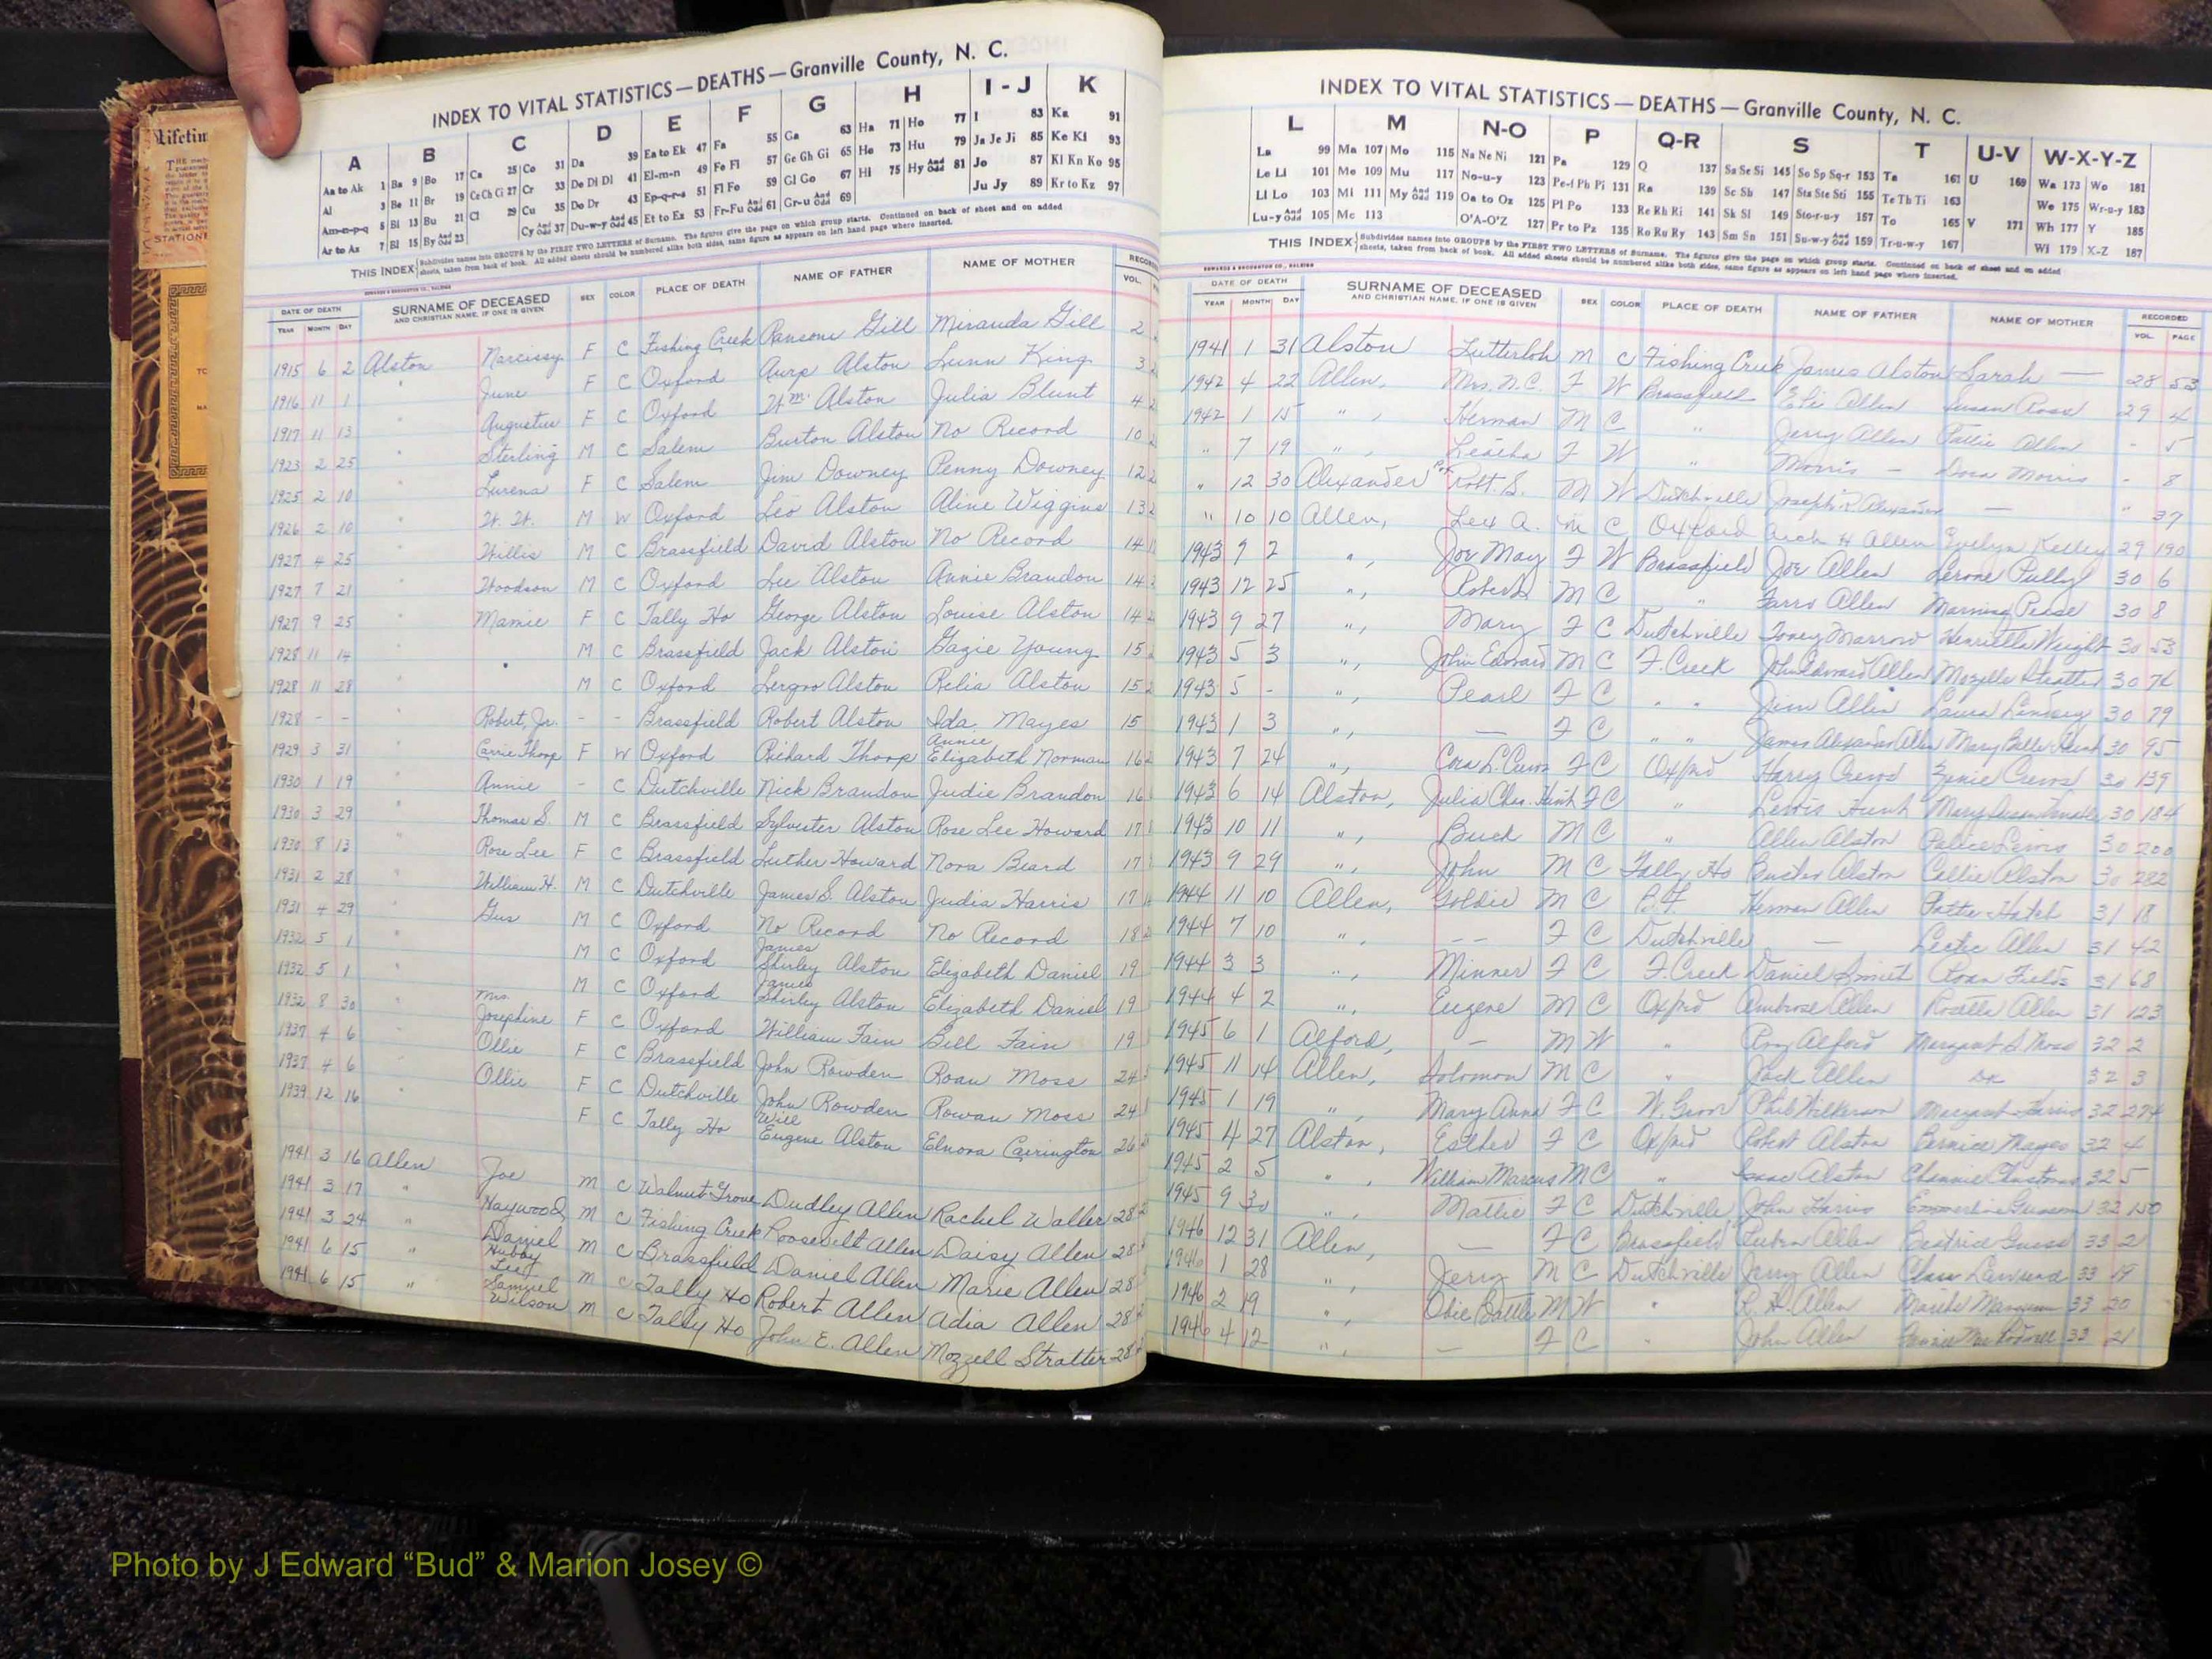 INDEX TO VITAL STATISTICS — DEATHS — Granville County, N. C.
A B C D E F G H I - J K
Aa to Ak 1 Ba 9 Bo 17 Ca 25 Co 31 Da 39 Ea to Ek 47 Fa 55 Ga 63 Ha 71 Ho 77 I 83 Ka 91
Al 3 Be 11 Br 19 Ce Ch Ci 27 Cr 33 De DI DI 41 El-m-n 49 Fe Fl 57 Ge Gh Gi 65 He 73 Hu 79 Ja Je Ji 85 Ke Kl 93
Am-n-p-q 5 Bl 13 Bu 21 Cl 29 Cu 35 Do Dr 43 Ep-q-r-s 51 Fl Fo 59 Gl Go 67 Hi 75 Hy And Odd 81 Jo 87 Kl Kn Ko 95
Ar to Ax 7 Bl 15 By And Odd 23 Cy And Odd 37 Du-w-y And Odd 45 Et to Ez 53 Fr-Fu And Odd 61 Gr-u And Odd 69 Ju Jy 89 Kr to Kz 97
THIS INDEX Subdivides names into GROUPS by the FIRST TWO LETTERS of Surname. The figures give the page on which group starts. Continued on back of sheet and on added
sheets, taken from back of book. All added sheets should be numbered alike both sides, same figure as appears on left hand page where inserted.
DATE OF DEATH SURNAME OF DECEASED SEX COLOR PLACE OF DEATH NAME OF FATHER NAME OF MOTHER
YEAR MONTH DAY AND CHRISTIAN NAME, IF ONE IS GIVEN VOL.
1915 6 2 Alston Narcissy F C Fishing Creek Ransom Gill Miranda Gill 2
1916 11 1 " June F C Oxford Alston Lunn King 3
1917 11 13 " Augustus F C Oxford Wm. Alston Julia Blunt 4
1923 2 25 " Sterling M C Salem Burton Alston No Record 10
1925 2 10 " Lurena F C Salem Jim Downey Penny Downey 12
1926 2 10 " M W Oxford Leo Alston Aline Wiggins 13
1927 4 25 " Willis M C Brassfield David Alston No Record 14
1927 7 21 " Woodson M C Oxford Lee Alston Annie Brandon 14
1927 9 25 " Mamie F C Tally Ho George Alston Louise Alston 14
1928 11 14 " M C Brassfield Jack Alston Gazie Young 15
1928 11 28 " M C Oxford Alston Rilia Alston 15
1928 - - " Robert, Jr. - - Brassfield Robert Alston Ida Mayes 15
1929 3 31 " Carrie Thorp F W Oxford Richard Thorp Annie Elizabeth Norman 16
1930 1 19 " Annie - C Dutchville Nick Brandon Judie Brandon 16
1930 3 29 " Thomas S. M C Brassfield Sylvester Alston Rose Lee Howard 17
1930 8 13 " Rose Lee F C Brassfield Luther Howard Nora Beard 17
1931 2 28 " William H. M C Dutchville James S. Alston Judia Harris 17
1931 4 29 " Gus M C Oxford No Record No Record 18
1932 5 1 " M C Oxford James Shirley Alston Elizabeth Daniel 19
1932 5 1 " M C Oxford James Shirley Alston Elizabeth Daniel 19
1932 8 30 " Mrs. Josephine F C Oxford William Fain Bell Fain 19
1937 4 6 " Ollie F C Brassfield John Rowden Roan Moss 24
1937 4 6 " Ollie F C Dutchville John Rowden Rowan Moss 24
1939 12 16 " F C Tally Ho Will Eugene Alston Elnora Carrington 26
1941 3 16 Allen Joe M C Walnut Grove Dudley Allen Rachel Waller 28
1941 3 17 " Haywood M C Fishing Creek Roosevelt Allen Daisy Allen 28
1941 3 24 " Daniel M C Brassfield Daniel Allen Marie Allen 28
1941 6 15 " Hubby Lee M C Tally Ho Robert Allen Adia Allen 28
1941 6 15 " Samuel Wilson M C Tally Ho John E. Allen Mozzell Stratter 28
INDEX TO VITAL STATISTICS — DEATHS — Granville County, N. C.
L M N-O P Q-R S T U-V W-X-Y-Z
La 99 Ma 107 Mo 115 Na Ne Ni 121 Pa 129 Q 137 Sa Se Si 145 So Sp Sq-r 153 Ta 161 U 169 Wa 173 Wo 181
Le Li 101 Me 109 Mu 117 No-u-y 123 Pe-f Ph Pi 131 Ra 139 Sc Sh 147 Sta Ste Sti 155 Te Th Ti 163 We 175 Wr-u-y 183
Ll Lo 103 Mi 111 My And Odd 119 Oa to Oz 125 Pl Po 133 Re Rh Ri 141 Sk Sl 149 Sto-r-u-y 157 To 165 V 171 Wh 177 Y 185
Lu-y And Odd 105 Mc 113 O'A-O'Z 127 Pr to Pz 135 Ro Ru Ry 143 Sm Sn 151 Su-w-y And Odd 159 Tr-u-w-y 167 Wi 179 X-Z 187
THIS INDEX Subdivides names into GROUPS by the FIRST TWO LETTERS of Surname. The figures give the page on which group starts. Continued on back of sheet and on added
sheets, taken from back of book. All added sheets should be numbered alike both sides, same figure as appears on left hand page where inserted.
EDWARDS & BROUGHTON CO., RALEIGH
DATE OF DEATH SURNAME OF DECEASED SEX COLOR PLACE OF DEATH NAME OF FATHER NAME OF MOTHER RECORDED
YEAR MONTH DAY AND CHRISTIAN NAME, IF ONE IS GIVEN VOL. PAGE
1941 1 31 Alston Lutterloh M C Fishing Creek James Alston Sarah — 28 53
1942 4 22 Allen, Mrs. N.C. F W Brassfield Eli Allen Susan Ross 29 4
1942 1 15 " , Herman M C " Jerry Allen Pattie Allen - 5
" 7 19 " , F W " Morris - Dora Morris - 8
" 12 30 Alexander Robt. S. M W Dutchville Joseph R Alexander — " 37
" 10 10 Allen, Lex A. M C Oxford Arch H Allen Evelyn Kelley 29 190
1943 9 2 " Joe May F W Brassfield Joe Allen Lerone Pully 30 6
1943 12 25 ", Robert M C " Farro Allen Morning Pease 30 8
1943 9 27 ", Mary F C Dutchville Toney Marrow Henrietta Wright 30 53
1943 5 3 ", John Edward M C F. Creek John Edward Allen Mozelle Stratter 30 76
1943 5 - ", Pearl F C " " Jim Allen Laura Lindsey 30 79
1943 1 3 ", — F C " " James Alexander Allen Mary Belle Hunt 30 95
1943 7 24 ", Cora L. Crews F C Oxford Harry Crews Crews 30 139
1943 6 14 Alston, Julia Chas. Hunt F C " Lewis Hunt Mary Susan 30 184
1943 10 11 ", Buck M C " Allen Alston Lewis 30 200
1943 9 29 ", John M C Tally Ho Buster Alston Callie Alston 30 282
1944 11 10 Allen, Goldie M C B.F. Herman Allen Pattie Hatch 31 18
1944 7 10 ", -- F C Dutchville — Allen 31 42
1944 3 3 ", Minner F C F. Creek Daniel Smith Roan Fields 31 68
1944 4 2 ", Eugene M C Oxford Ambrose Allen Rozelle Allen 31 123
1945 6 1 Alford, - M W " Roy Alford Margaret S Moss 32 2
1945 11 14 Allen, Solomon M C " Jack Allen DK 32 3
1945 1 19 ", Mary Anna F C W. Grove Phil Wilkerson Margaret Harris 32 274
1945 4 27 Alston, Esther F C Oxford Robert Alston Bernice Mayes 32 4
1945 2 5 " , William Marcus M C " Isaac Alston 32 5
1945 9 30 " , Mattie F C Dutchville John Harris 32 150
1946 12 31 Allen, — F C Brassfield Allen Beatrice 33 2
1946 1 28 ", Jerry M C Dutchville Jerry Allen Clara 33 19
1946 2 19 ", Obie Battle M W " R. H. Allen 33 20
1946 4 12 ", — F C " John Allen 33 21
Photo by J Edward “Bud” & Marion Josey ©